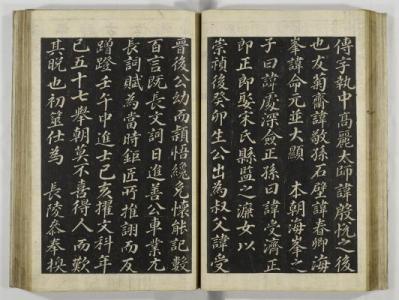 傳字執中高麗太師諱殷悅之後
也女菊齋諱敬孫石壁諱春卿海
峯諱命元並大顯 本朝海峯之
子曰諱處深僉正孫曰諱受濟正
即正即娶宋氏縣監之濂女以
崇禎後癸卯生公出為叔父諱受
晉後公幼而頴悟纔免懷能記數
百言既長文詞日進善公車業尤
長詞賦為當時鉅匠所推詡而反
蹭蹬壬午中進士己亥擢文科年
已五十七擧朝莫不喜得人而歎
其晩也初筮仕為 長陵叅奉換